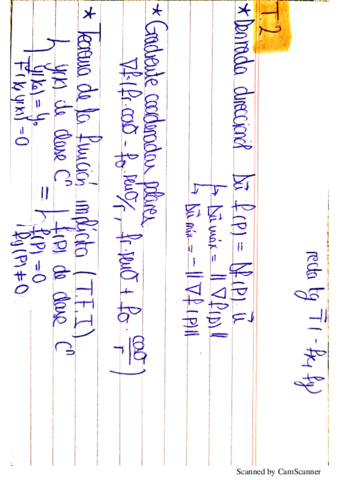 T.2
recta tg T(-fx, fy)
* Derivada direccional Dū f(P) = ∇f(P) ū
↳ Dū máx = ||∇f(P)||
↳ Dū mix = -||∇f(P)||
* Gradiente coordenadas polares
∇f(fr·cosσ - fσ·senσ/r, fr·senσ + fσ·cosσ/r)
* Teorema de la función implícita (T.F.I)
y(x) de clase C¹ = f(P) de clase C¹
y(x₀) = y₀ f(P) = 0
F(x, y(x)) = 0 fy(P) ≠ 0
Scanned by CamScanner